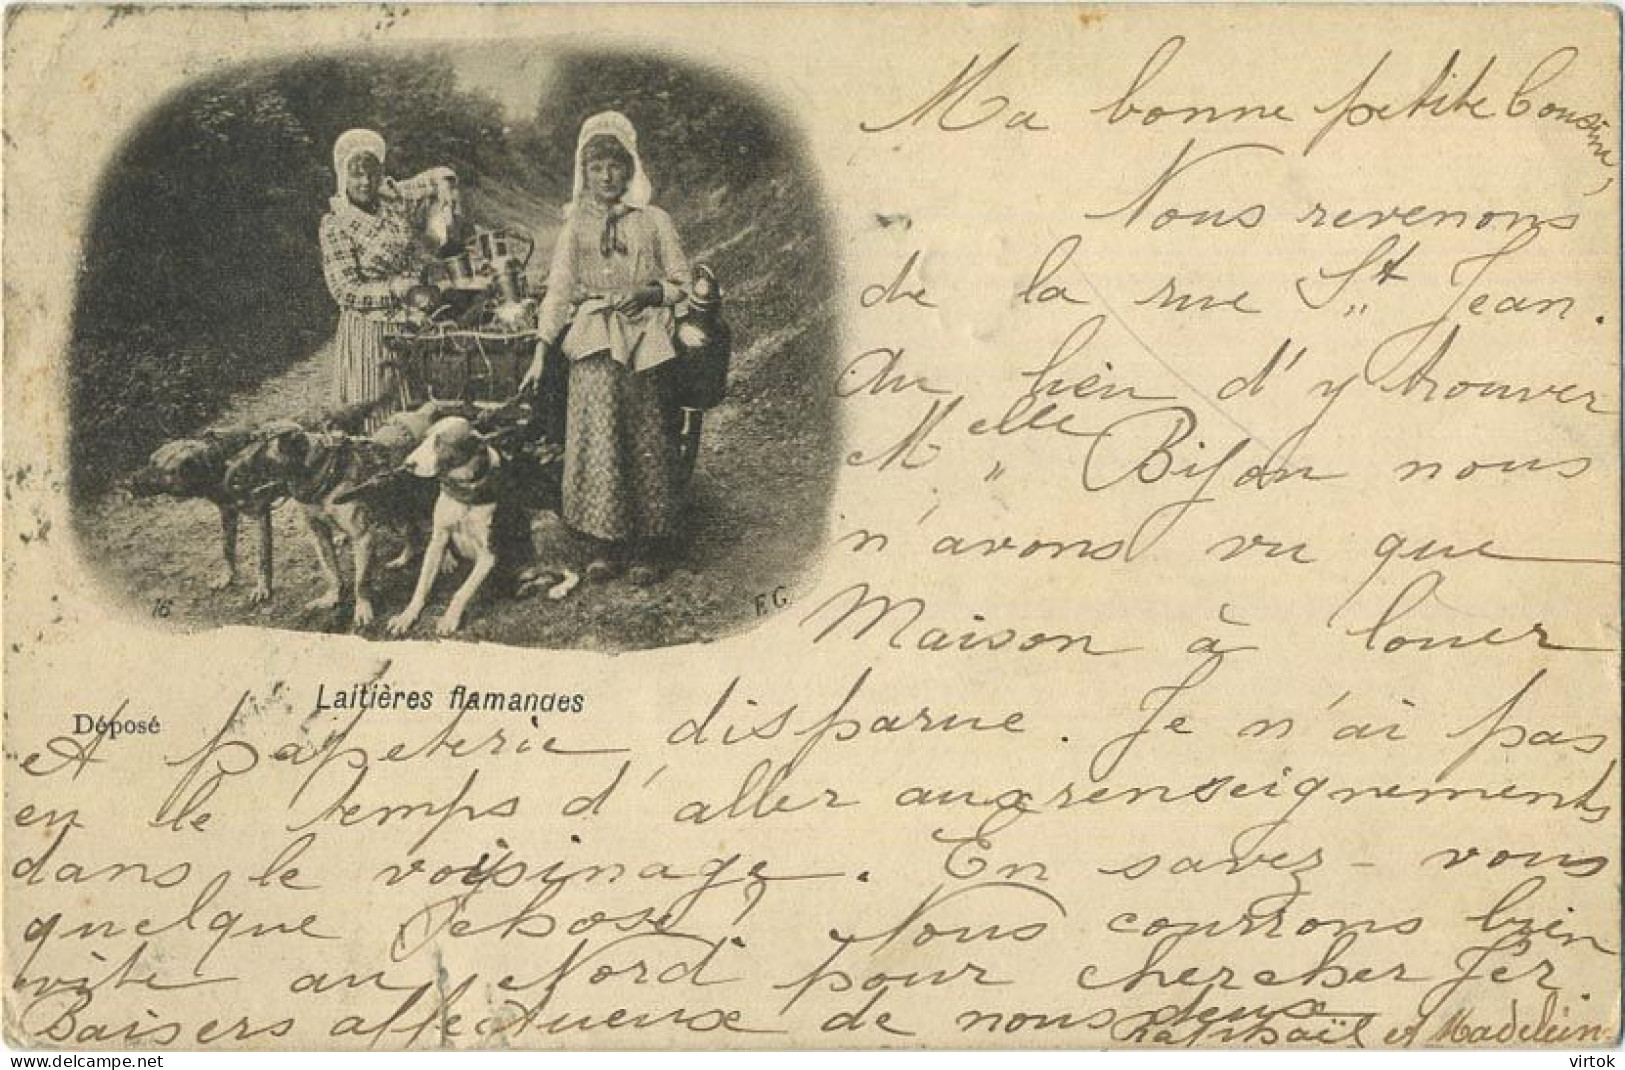 Ma bonne petite Cousine,
Nous revenons
de la rue St Jean.
Au lieu d'y trouver
Melle Bijon nous
n'avons vu que
Maison à louer
16
F.G.
Laitières flamandes
Déposé
et papeterie disparue. Je n'ai pas
eu le temps d'aller aux renseignements
dans le voisinage. En savez-vous
quelque chose? Nous courrons bien
vite au Nord pour chercher
Baisers affectueux de nous deux
Raphaël et Madelein
virtok